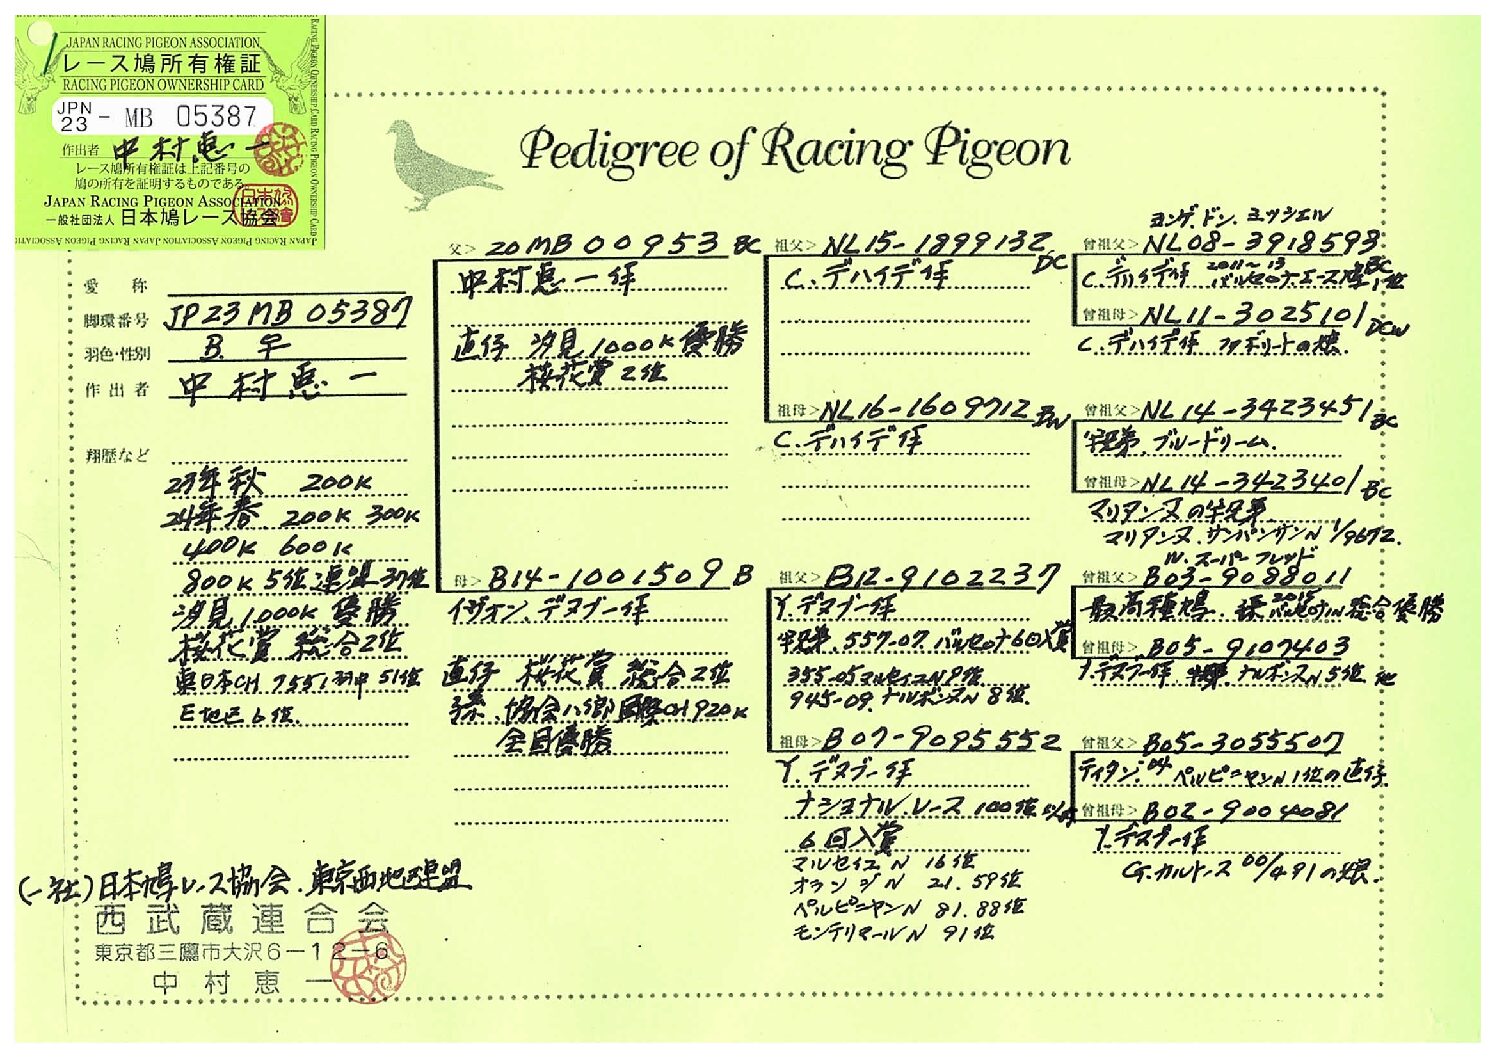 JAPAN RACING PIGEON ASSOCIATION
レース鳩所有権証
RACING PIGEON OWNERSHIP CARD
JPN 23 - MB 05387
作出者 中村恵一
レース鳩所有権証は上記番号の
鳩の所有を証明するものである。
JAPAN RACING PIGEON ASSOCIATION
一般社団法人 日本鳩レース協会
Pedigree of Racing Pigeon
愛称
脚環番号 JP23MB05387
羽色・性別 B ♀
作出者 中村恵一
翔歴など
23年秋 200K
24年春 200K 300K
400K 600K
800K 5位 連盟37位
汐見1000K優勝
桜花賞 総合2位
東日本CH 7551羽中 51位
E地区6位.
(一社)日本鳩レース協会.東京西地区連盟
西武蔵連合会
東京都三鷹市大沢6-12-6
中村恵一
父> 20MB00953 BC
中村恵一作
直仔 汐見1000K優勝
桜花賞2位
母> B14-1001509 B
イヴォン.デヌブー作
直仔 桜花賞 総合2位
孫. 協会八郷国際CH920K
全国優勝
祖父> NL15-1899132 DC
C.デハイデ作
祖母> NL16-1609712 BW
C.デハイデ作
祖父> B12-9102237
Y.デヌブー作
全兄弟.557-07.バルセロナ6回入賞
355-05マルセイユN9位
945-09.ナルボンヌN 8位.
祖母> B07-9095552
Y.デヌブー作
ナショナル.レース 100位以内
6回入賞
マルセイユN 16位
オランジN 21.59位
ペルピニャンN 81.88位
モンテリマールN 91位
ヨンゲ.ドン.ミッシェル
曾祖父> NL08-3918593 BC
C.デハイデ作 2011~13 バルセロナ.エース鳩1位
曾祖母> NL11-3025101 DCW
C.デハイデ作 ファボリートの娘.
曾祖父> NL14-3423451 BC
全兄弟.ブルードリーム.
曾祖母> NL14-3423401 BC
マリアンヌの全兄弟
マリアンヌ.サンバンサンN 1/9672.
W.スーパーフレッド
曾祖父> B03-9088011
最高種鳩. 孫 バルセロナIN総合優勝
曾祖母> B05-9107403
Y.デヌブー作 ナルボンヌN5位 他
曾祖父> B05-3055507
ティタン.04 ペルピニャンN1位の直仔
曾祖母> B02-9004081
Y.デヌブー作
G.カルトース 00/491の娘.